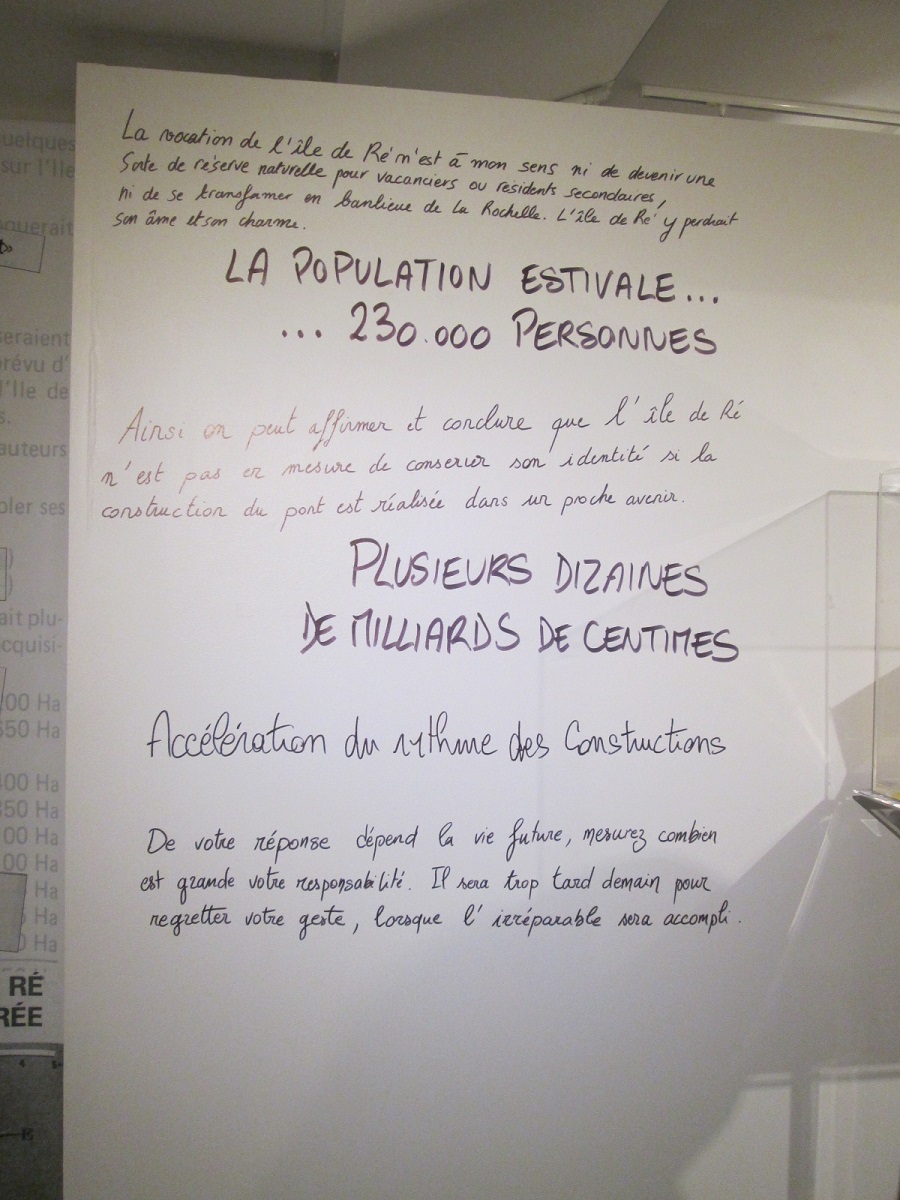 La vocation de l'île de Ré n'est à mon sens ni de devenir une
Sorte de réserve naturelle pour vacanciers ou résidents secondaires,
ni de se transformer en banlieue de La Rochelle. L'île de Ré y perdrait
son âme et son charme.
LA POPULATION ESTIVALE...
... 230.000 PERSONNES
Ainsi on peut affirmer et conclure que l'île de Ré
n'est pas en mesure de conserver son identité si la
construction du pont est réalisée dans un proche avenir.
PLUSIEURS DIZAINES
DE MILLIARDS DE CENTIMES
Accélération du rythme des Constructions
De votre réponse dépend la vie future, mesurez combien
est grande votre responsabilité. Il sera trop tard demain pour
regretter votre geste, lorsque l'irréparable sera accompli.
uelques
sur l'Ile
seraient
prévu d'
l'Ile de
s.
auteurs
ses
ait plu-
cquisi-
00 Ha
550 Ha
400 Ha
350 Ha
00 Ha
00 Ha
Ha
Ha
0 Ha
RÉ
RÉE